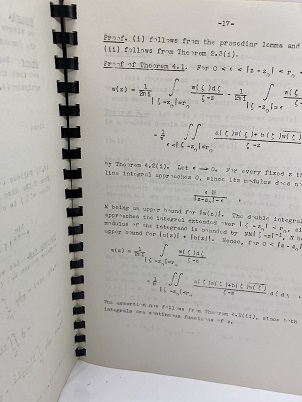 -17-
Proof. (i) follows from the preceding lemma and
(ii) follows from Theorem 2.3(i).
Proof of Theorem 4.1. For 0 < ε < |z-z₀| < r₀
w(z) = 1/2πi ∫ w(ζ)dζ/ζ-z - 1/2πi ∫ w(ζ
|ζ-z₀|=r₀ |ζ-z₀|=ε
- 1/π ∬ a(ζ)w(ζ)+b(ζ)w(ζ)/ζ-z
ε<|ζ-z₀|<r₀
by Theorem 4.2(i). Let ε → 0. For every fixed z th
line integral approaches 0, since its modulus does no
ε M/|z-z₀|-ε ,
M being an upper bound for |w(z)|. The double integral
approaches the integral extended over |ζ-z₀| < r₀, si
modulus of the integrand is bounded by
upper bound for |a(z)| + |b(z)|. Hence, for 0 < |z-z₀|
w(z) = 1/2πi ∫ w(ζ)dζ/ζ-z
|ζ-z₀|=r₀
- 1/π ∬ a(ζ)w(ζ)+b(ζ)w(ζ)/ζ-z
|ζ-z₀|<r₀
The assertion now follows from Theorem 2.2(ii), since both
integrals are continuous functions of z.